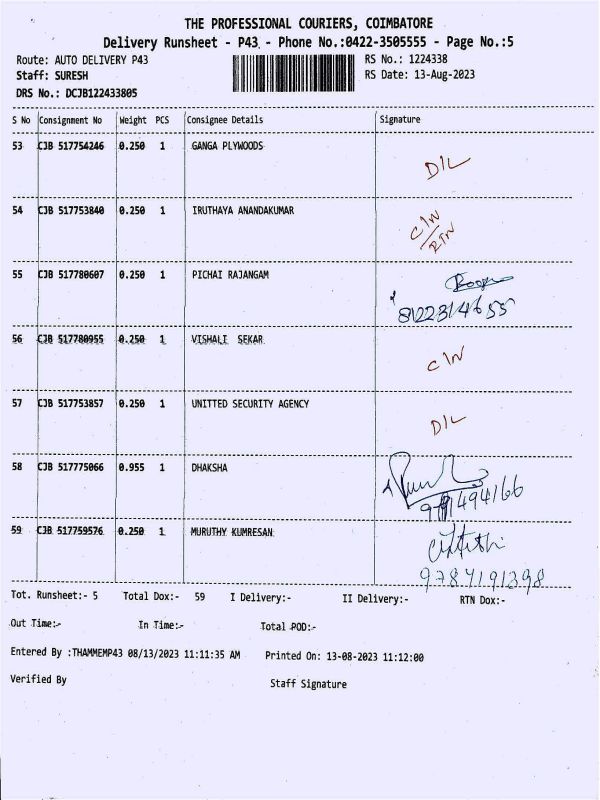 THE PROFESSIONAL COURIERS, COIMBATORE
Delivery Runsheet - P43 - Phone No.:0422-3505555 - Page No.:5
Route: AUTO DELIVERY P43 RS No.: 1224338
Staff: SURESH RS Date: 13-Aug-2023
DRS No.: DCJB122433805
S No Consignment No Weight PCS Consignee Details Signature
53 CJB 517754246 0.250 1 GANGA PLYWOODS D/L
54 CJB 517753840 0.250 1 IRUTHAYA ANANDAKUMAR C/N
RTN
55 CJB 517780607 0.250 1 PICHAI RAJANGAM
8122314655
56 CJB 517780955 0.250 1 VISHALI SEKAR C/N
57 CJB 517753857 0.250 1 UNITTED SECURITY AGENCY D/L
58 CJB 517775066 0.955 1 DHAKSHA
59 CJB 517759576 0.250 1 MURUTHY KUMRESAN
9787191398
Tot. Runsheet:- 5 Total Dox:- 59 I Delivery:- II Delivery:- RTN Dox:-
Out Time:- In Time:- Total POD:-
Entered By :THAMMEMP43 08/13/2023 11:11:35 AM Printed On: 13-08-2023 11:12:00
Verified By Staff Signature